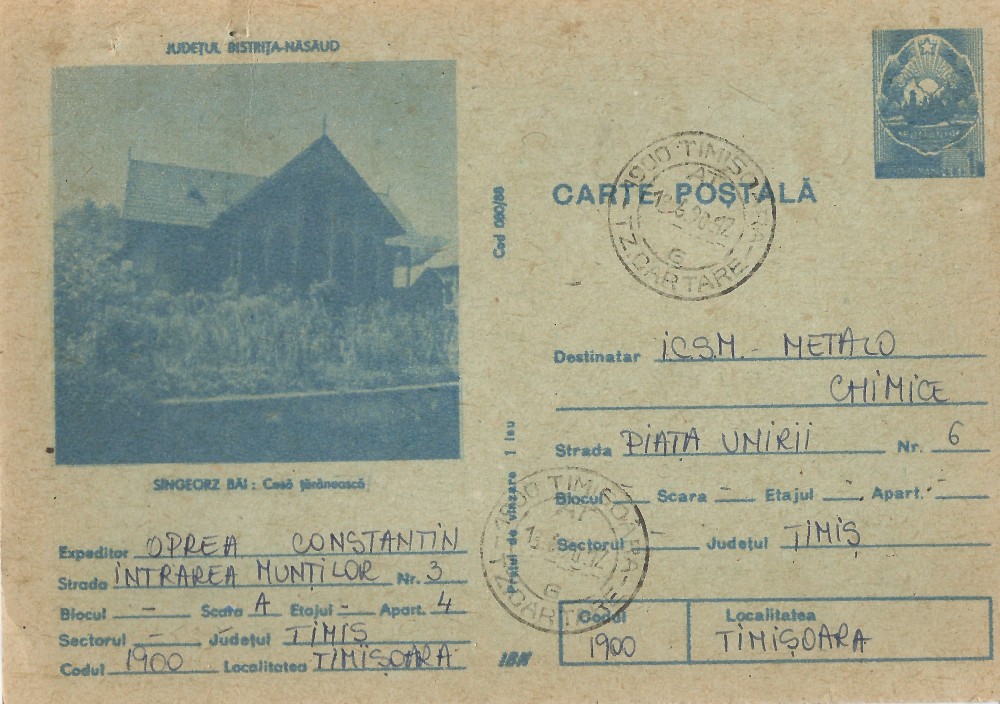 JUDEȚUL BISTRIȚA-NĂSĂUD
SÎNGEORZ BĂI : Casă țărănească
Expeditor OPREA CONSTANTIN
Strada INTRAREA MUNȚILOR Nr. 3
Blocul - Scara A Etajul - Apart. 4
Sectorul - Județul TIMIȘ
Codul 1900 Localitatea TIMIȘOARA
Cod 080/88
Prețul de vînzare 1 leu
IBN
CARTE POȘTALĂ
ROMANIA
1900 TIMIȘOARA
AT
G
TZ.CARTARE
Destinatar I.C.S.M. - METALO
CHIMICE
Strada PIAȚA UNIRII Nr. 6
Blocul - Scara - Etajul - Apart. -
Sectorul - Județul TIMIȘ
1900 TIMIȘOARA
AT
G
TZ.CARTARE
Codul Localitatea
1900 TIMIȘOARA